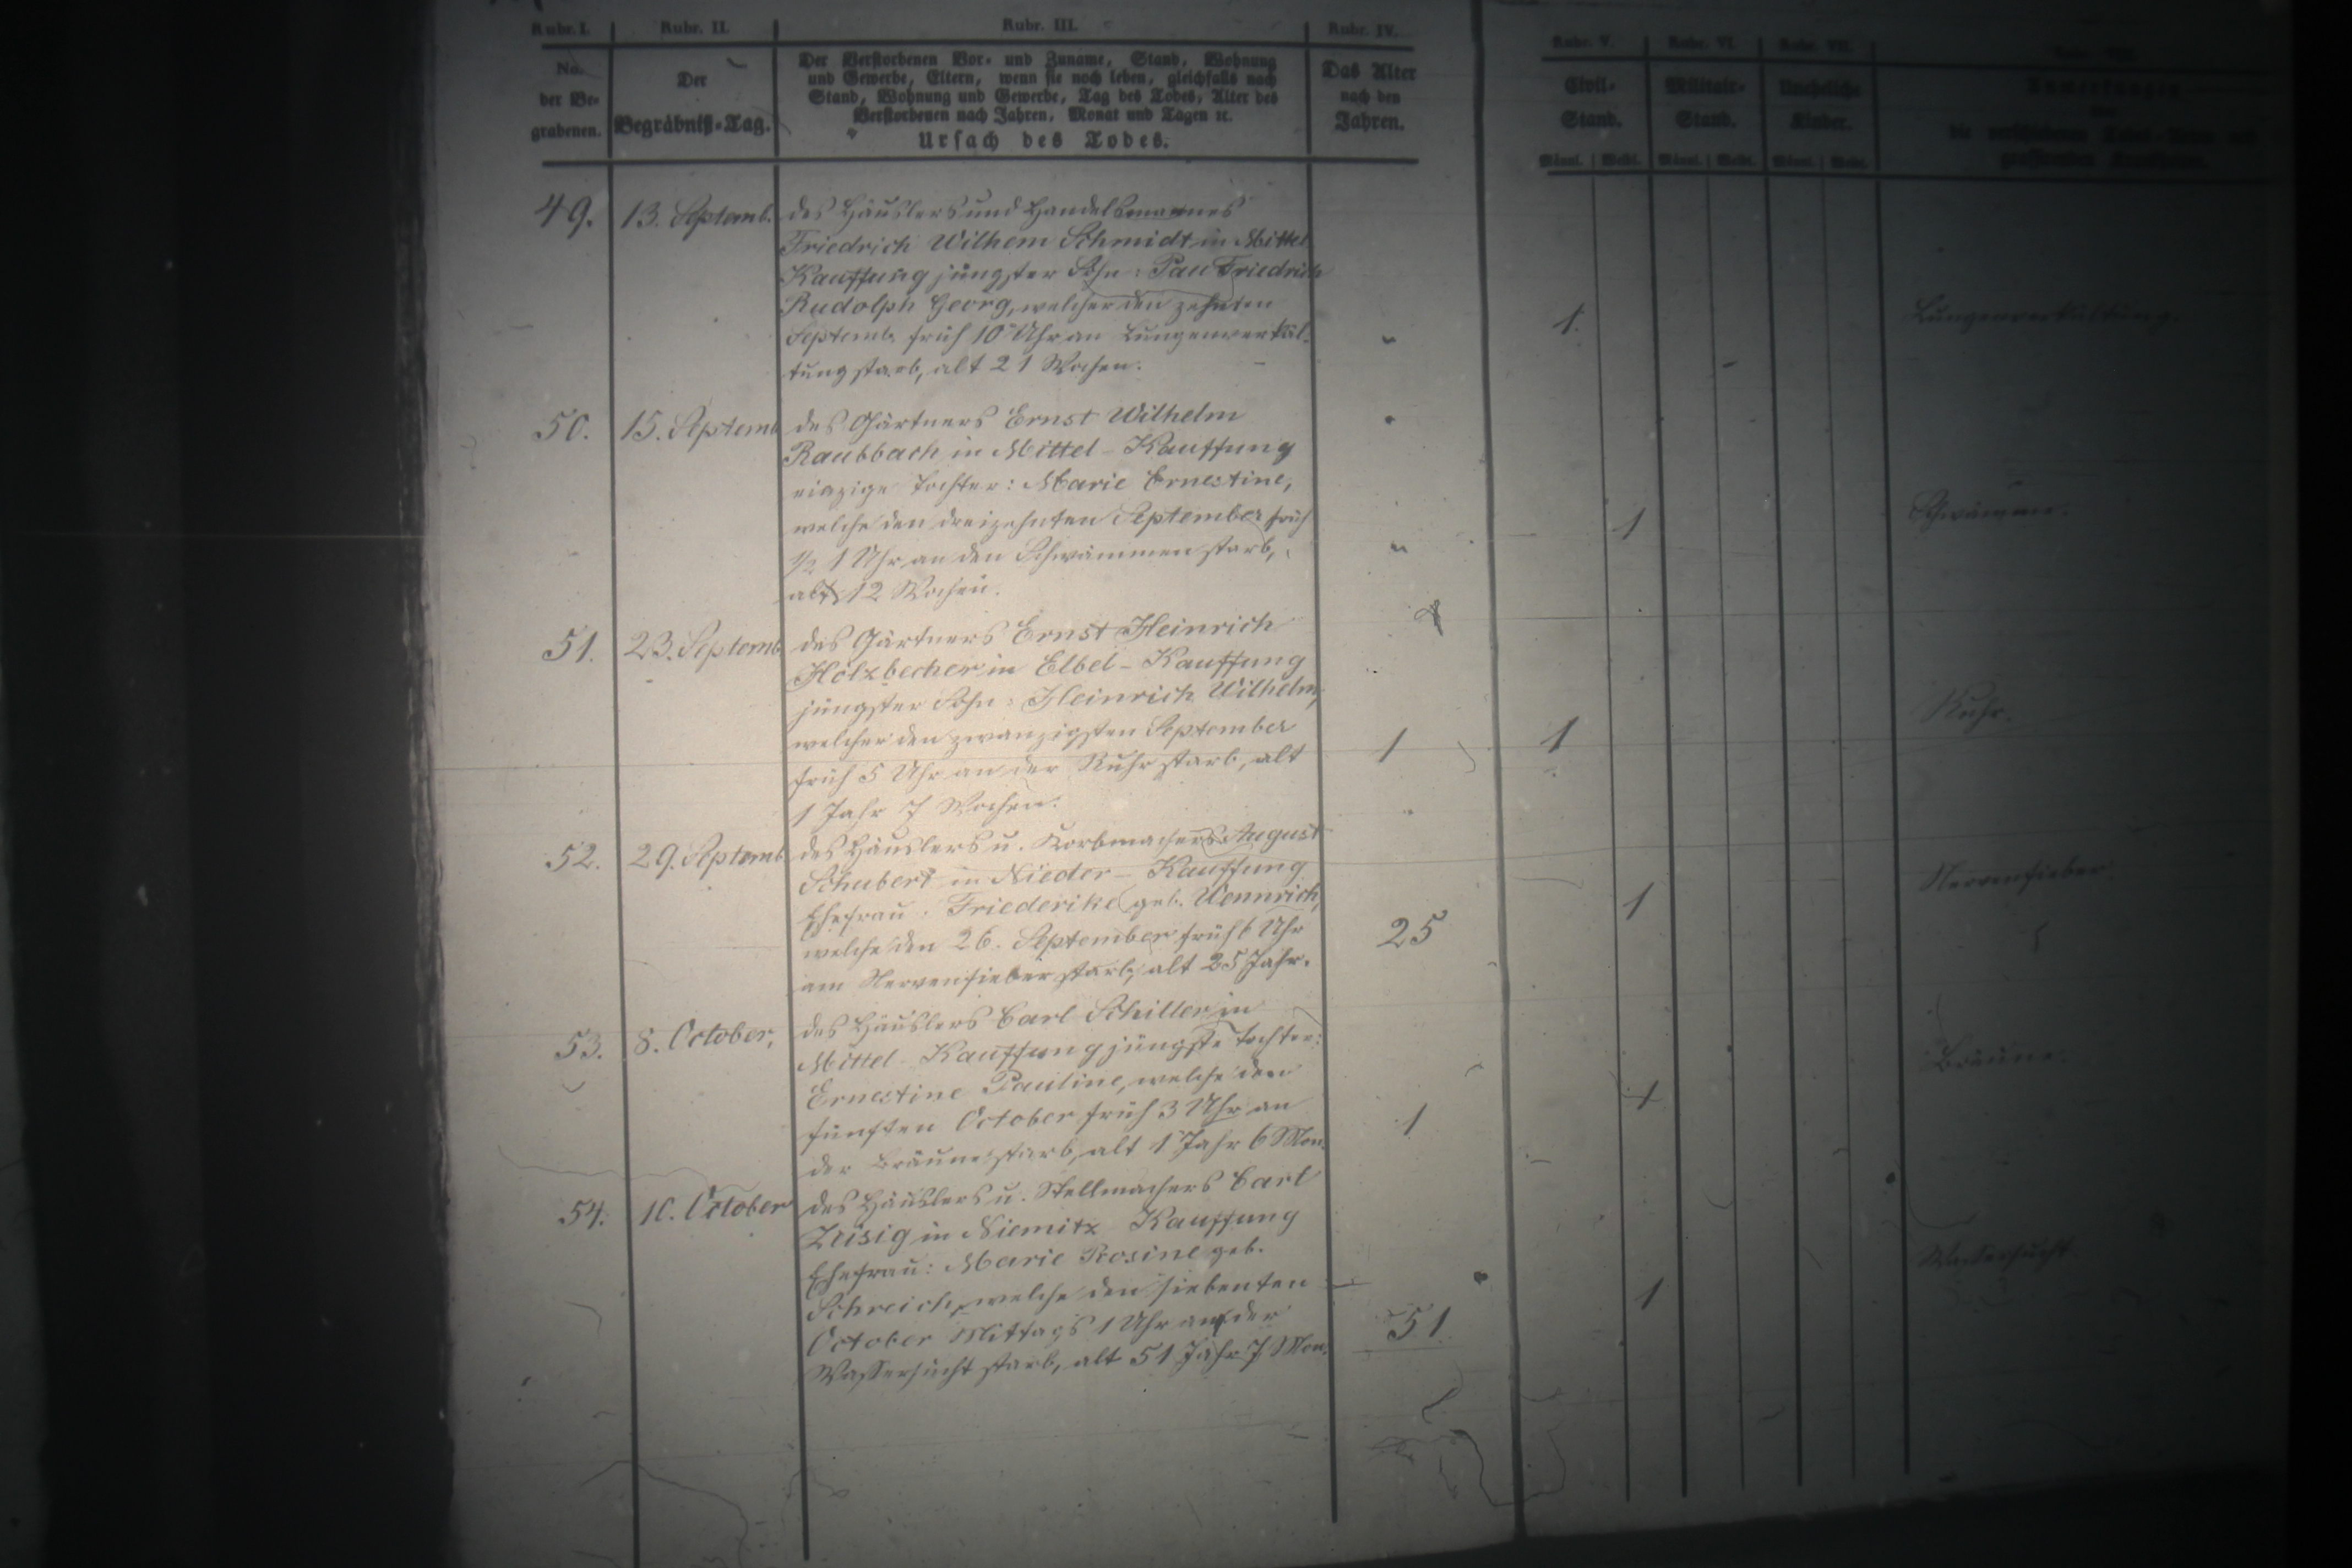 Rubr. I. Rubr. II. Rubr. III. Rubr. IV. Rubr. V. Rubr. VI. Rubr. VII.
No. der Be- grabenen.
Der Begräbniß-Tag.
Der Verstorbenen Vor- und Zuname, Stand, Wohnung
und Gewerbe, Eltern, wenn sie noch leben, gleichfalls nach
Stand, Wohnung und Gewerbe, Tag des Todes, Alter des
Verstorbenen nach Jahren, Monat und Tagen ꝛc.
Ursach des Todes.
Das Alter nach den Jahren.
Civil- Stand.
Militair- Stand.
Uneheliche Kinder.
Anmerkungen
Männl. Weibl. Männl. Weibl. Männl. Weibl.
49. 13. Septemb. des Häuslers und Handelsmannes
Friedrich Wilhem Schmidt in Mittel
Kauffung jüngster Sohn: Pau Friedrich
Rudolph Georg, welcher den zehnten
Septemb. früh 10 Uhr an Lungenverkäl- 1. Lungenverkältung.
tung starb, alt 21 Wochen.
50. 15. Septemb des Gärtners Ernst Wilhelm
Raubbach in Mittel-Kauffung
einzige Tochter: Marie Ernestine,
welche den dreizehnten September früh 1 Schwämmen.
1/2 1 Uhr an den Schwämmen starb,
alt 12 Wochen.
51. 23. Septemb des Gärtners Ernst Heinrich
Holzbecher in Elbel-Kauffung
jüngster Sohn: Heinrich Wilhelm, Ruhr.
welcher den zwanzigsten September 1 1
früh 5 Uhr an der Ruhr starb, alt
1 Jahr 7 Wochen.
52. 29. Septemb. des Häuslers u. Korbmachers August
Schubert in Nieder-Kauffung Nervenfieber.
Ehefrau: Friederike geb. Wennrich, 1
welche den 26. September früh 6 Uhr 25
am Nervenfieber starb, alt 25 Jahr.
53. 8. October, des Häuslers Carl Schiller in
Mittel-Kauffung jüngste Tochter: Bräune.
Ernestine Pauline, welche den 1
fünften October früh 3 Uhr an 1
der Bräune starb, alt 1 Jahr 6 Mon.
54. 10. October des Häuslers u. Stellmachers Carl
Zeisig in Niemitz Kauffung
Ehefrau: Marie Rosine geb. Wassersucht.
Schreich, welche den siebenten 1
October Mittags 1 Uhr an der 51
Wassersucht starb, alt 51 Jahr 7 Mon.